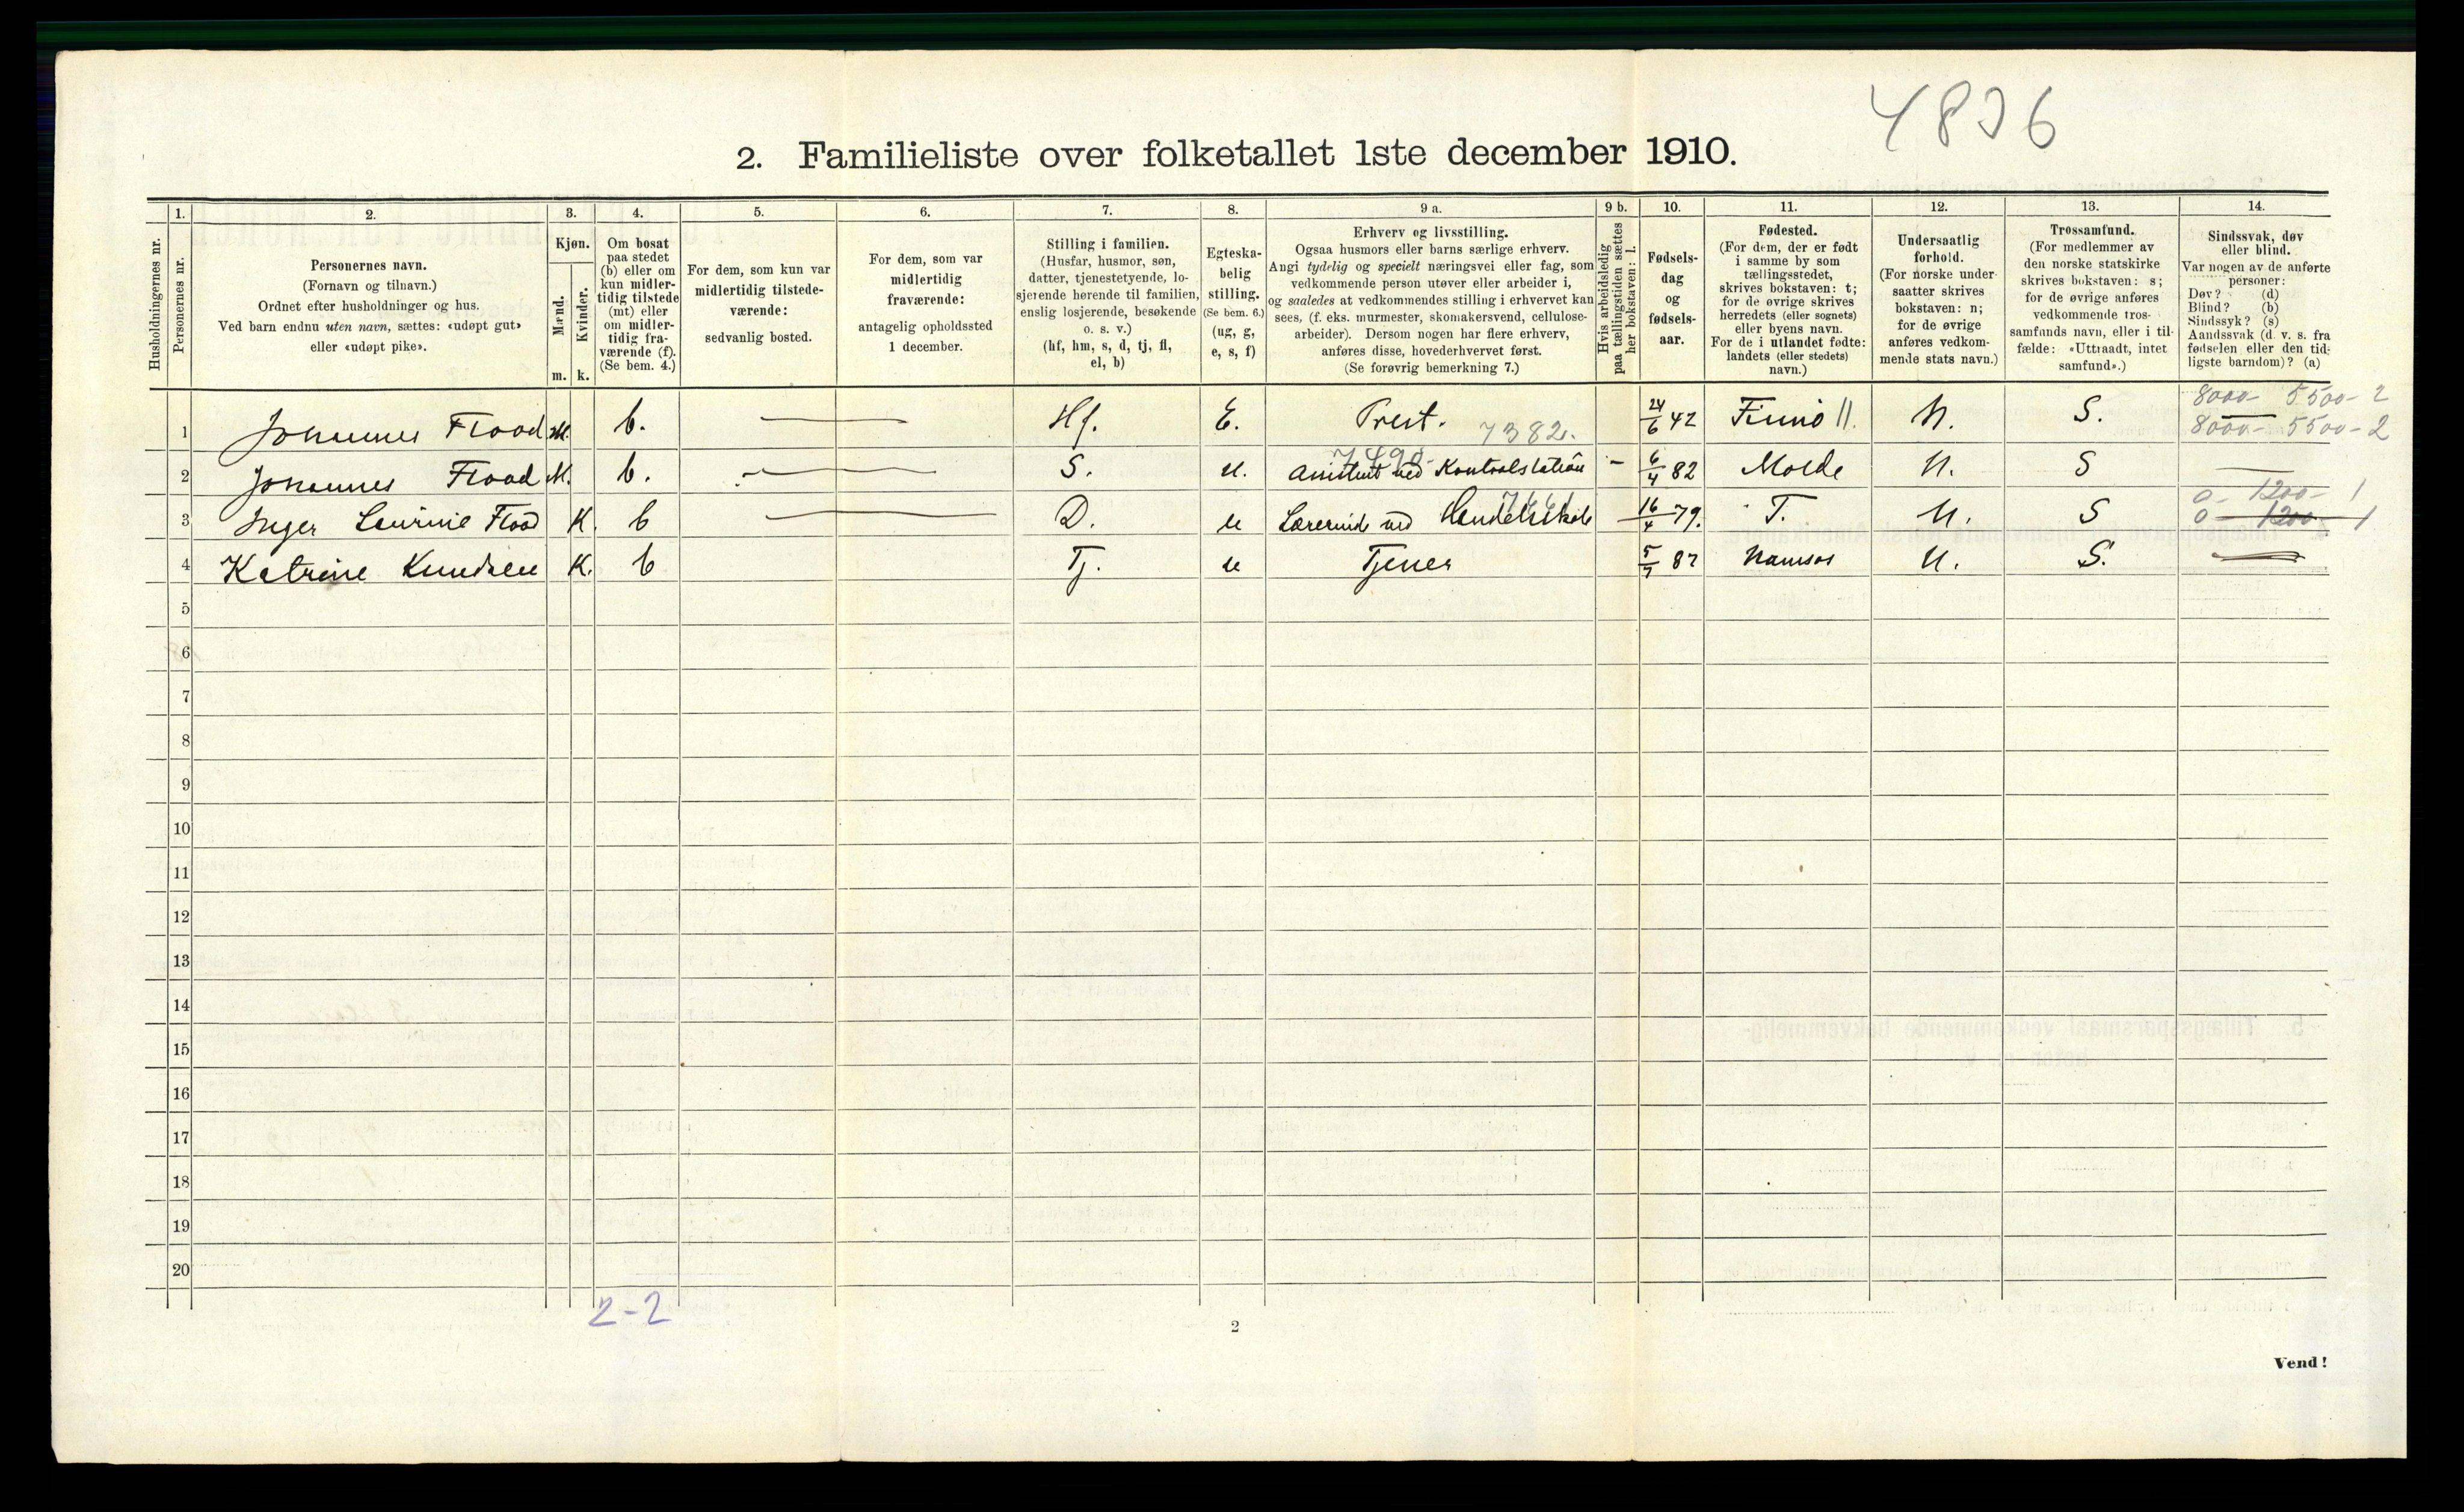 4836
2. Familieliste over folketallet 1ste december 1910.
Husholdningernes nr.
1.
Personernes nr.
2.
Personernes navn.
(Fornavn og tilnavn.)
Ordnet efter husholdninger og hus.
Ved barn endnu uten navn, sættes: «udøpt gut»
eller «udøpt pike».
3.
Kjøn.
Mænd.
Kvinder.
m. k.
4.
Om bosat
paa stedet
(b) eller om
kun midler-
tidig tilstede
(mt) eller
om midler-
tidig fra-
værende (f).
(Se bem. 4.)
5.
For dem, som kun var
midlertidig tilstede-
værende:
sedvanlig bosted.
6.
For dem, som var
midlertidig
fraværende:
antagelig opholdssted
1 december.
7.
Stilling i familien.
(Husfar, husmor, søn,
datter, tjenestetyende, lo-
sjerende hørende til familien,
enslig losjerende, besøkende
o. s. v.)
(hf, hm, s, d, tj, fl,
el, b)
8.
Egteska-
belig
stilling.
(Se bem. 6.)
(ug, g,
e, s, f)
9 a.
Erhverv og livsstilling.
Ogsaa husmors eller barns særlige erhverv.
Angi tydelig og specielt næringsvei eller fag, som
vedkommende person utøver eller arbeider i,
og saaledes at vedkommendes stilling i erhvervet kan
sees, (f. eks. murmester, skomakersvend, cellulose-
arbeider). Dersom nogen har flere erhverv,
anføres disse, hovederhvervet først.
(Se forøvrig bemerkning 7.)
9 b.
Hvis arbeidsledig
paa tællingstiden sættes
her bokstaven: l.
10.
Fødsels-
dag
og
fødsels-
aar.
11.
Fødested.
(For dem, der er født
i samme by som
tællingsstedet,
skrives bokstaven: t;
for de øvrige skrives
herredets (eller sognets)
eller byens navn.
For de i utlandet fødte:
landets (eller stedets)
navn.)
12.
Undersaatlig
forhold.
(For norske under-
saatter skrives
bokstaven: n;
for de øvrige
anføres vedkom-
mende stats navn.)
13.
Trossamfund.
(For medlemmer av
den norske statskirke
skrives bokstaven: s;
for de øvrige anføres
vedkommende tros-
samfunds navn, eller i til-
fælde: «Uttraadt, intet
samfund».)
14.
Sindssvak, døv
eller blind.
Var nogen av de anførte
personer:
Døv? (d)
Blind? (b)
Sindssyk? (s)
Aandssvak (d. v. s. fra
fødselen eller den tid-
ligste barndom)? (a)
8000- 5500- 2
1 Johannes Flood M. b. Hf. E. Prest. 7382. 24/6 42 Finnö 11. N. S. 8000- 5500- 2
2 Johannes Flood M. b. S. u. 7490- Assistent ved Kontrolstation - 6/4 82 Molde N. S
0- 1200- 1
3 Inger Laurinie Flood K. b D. u Lærerinde ved Handelsskole 16/4 79. T. N. S 0 1200 1
4 Katrine Knudsen K. b Tj. u Tjener 5/7 87 Namsos N. S.
5
6
7
8
9
10
11
12
13
14
15
16
17
18
19
20
2-2
2
Vend!